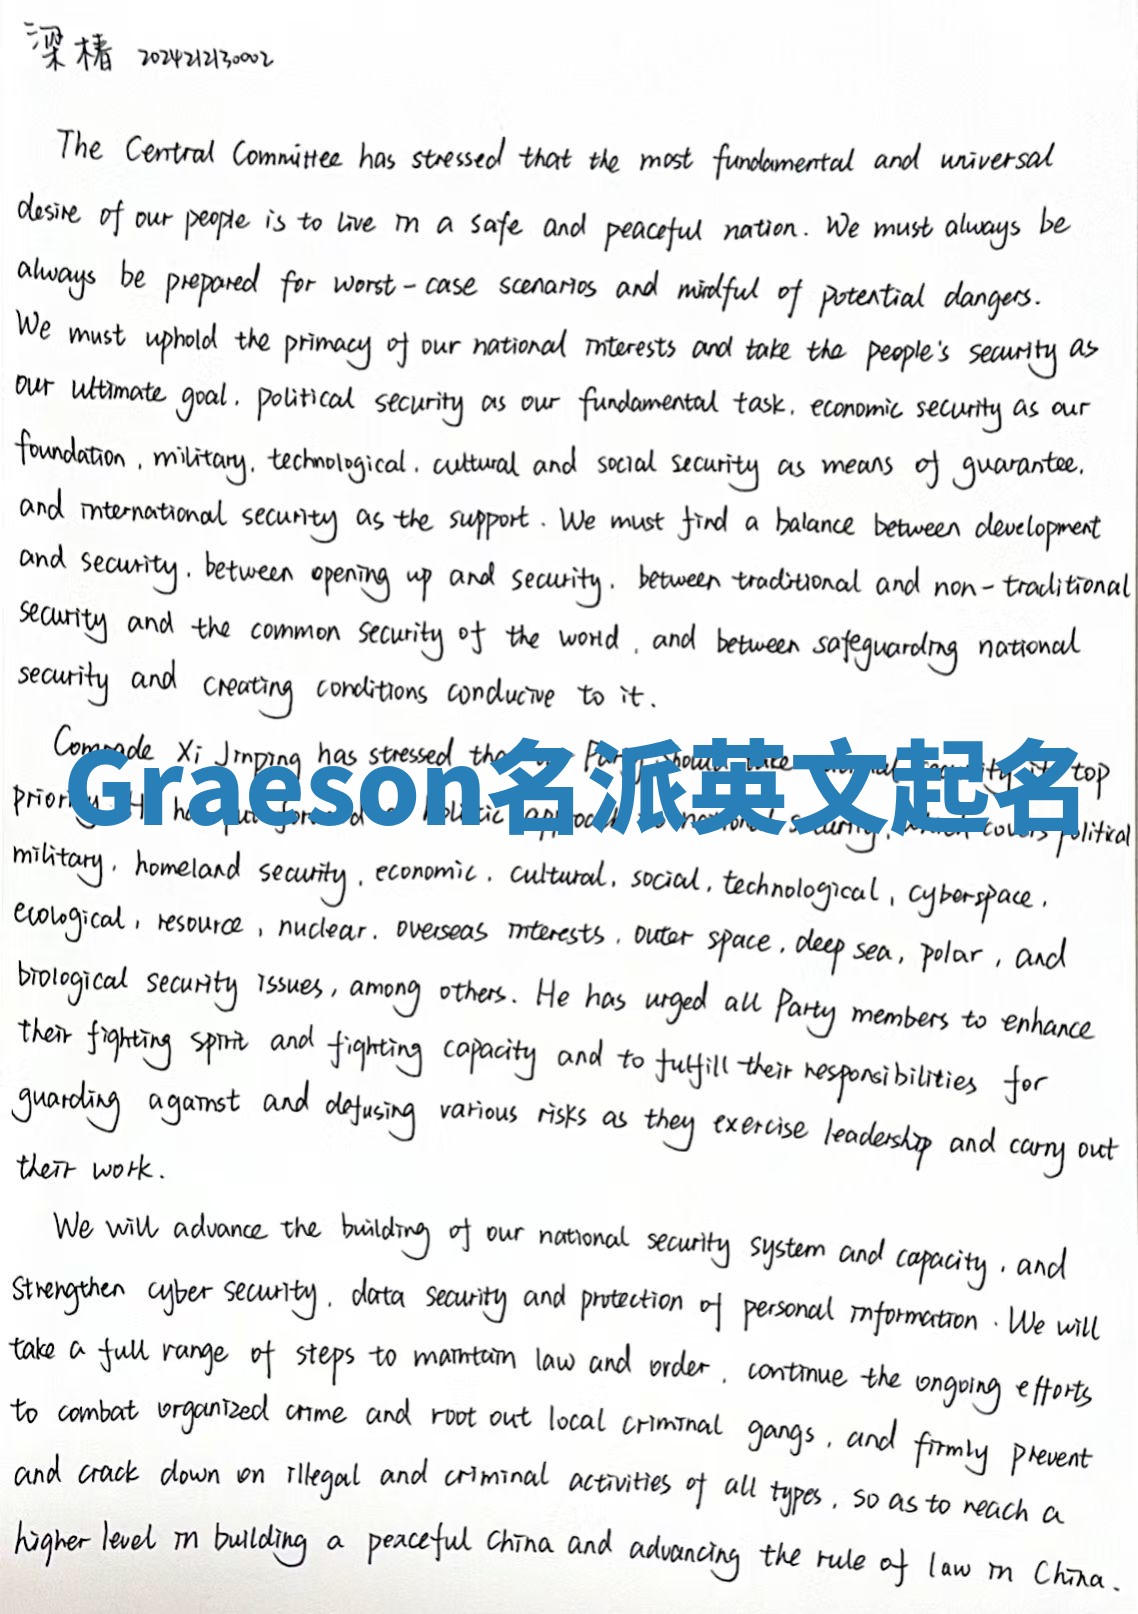 梁椿 2024212130002
The Central Committee has stressed that the most fundamental and universal
desire of our people is to live in a safe and peaceful nation. We must always be
always be prepared for worst-case scenarios and mindful of potential dangers.
We must uphold the primacy of our national interests and take the people's security as
our ultimate goal, political security as our fundamental task, economic security as our
foundation, military, technological, cultural and social security as means of guarantee,
and international security as the support. We must find a balance between development
and security, between opening up and security, between traditional and non-traditional
security and the common security of the world, and between safeguarding national
security and creating conditions conducive to it.
Comrade Xi Jinping has stressed Party should take security its top
Graeson名派英文起名
priority. He has put forward a holistic approach to national security, which covers political
military, homeland security, economic, cultural, social, technological, cyberspace,
ecological, resource, nuclear, overseas interests, outer space, deep sea, polar, and
biological security issues, among others. He has urged all Party members to enhance
their fighting spirit and fighting capacity and to fulfill their responsibilities for
guarding against and defusing various risks as they exercise leadership and carry out
their work.
We will advance the building of our national security system and capacity, and
strengthen cyber security, data security and protection of personal information. We will
take a full range of steps to maintain law and order, continue the ongoing efforts
to combat organized crime and root out local criminal gangs, and firmly prevent
and crack down on illegal and criminal activities of all types, so as to reach a
higher level in building a peaceful China and advancing the rule of law in China.